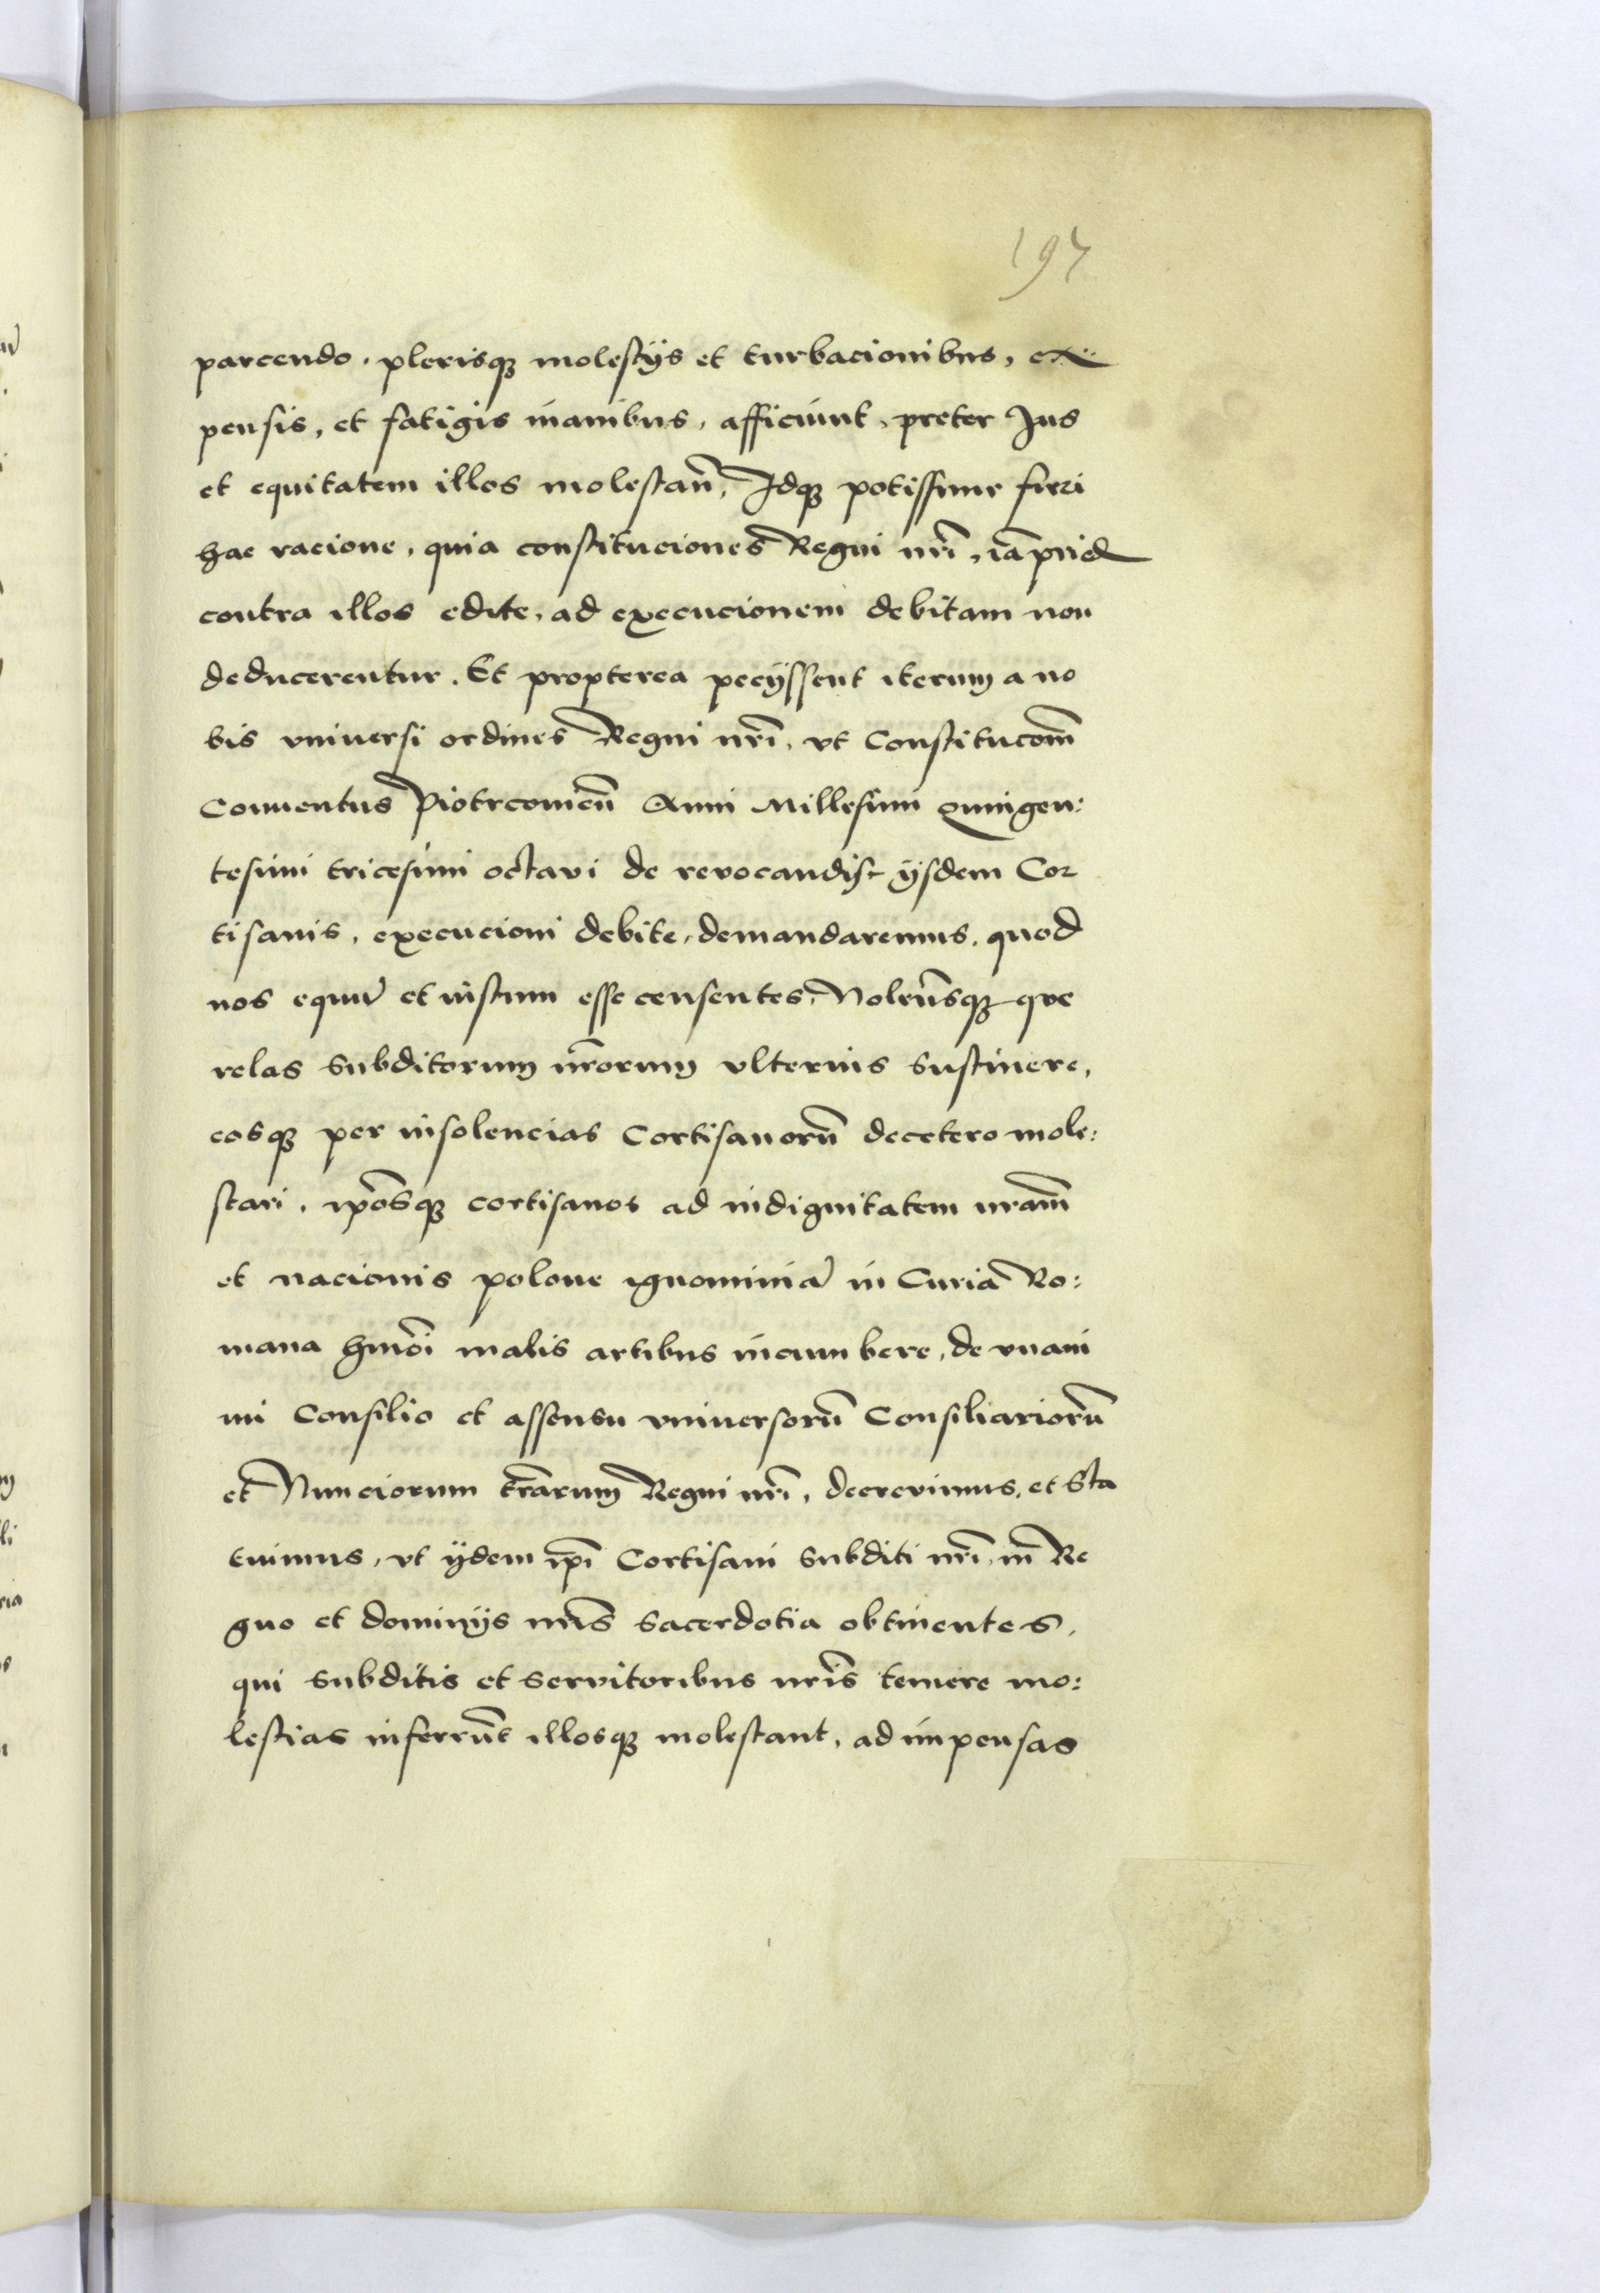 197
parcendo. plerisqꝫ molestijs et turbacionibus, ex
pensis, et fatigis inanibus, afficiunt, preter Jus
et equitatem illos molestan̄, Idqꝫ potissime fieri
hac racione, quia constituciones Regni nr̄i, iā prid
contra illos edite, ad execucionem debitam non
deducerentur. Et propterea pecijssent iterum a no
bis vniuersi ordines Regni nr̄i, vt Constitucōm̄
Conuentus Piotrcouien̄ Anni Millesimi quingen:
tesimi tricesimi octaui de reuocandis ijsdem Cor
tisanis, execucioni debite, demandaremus. quod
nos equū et iustum esse censentes, Nolen̄sqꝫ que
relas Subditorum nr̄orum vlterius Sustinere,
eosqꝫ per insolencias Cortisanorū decetero mole:
stari, ip̄osqꝫ cortisanos ad indignitatem nram̄
et nacionis polone ignominiā in Curia Ro:
mana hmōi malis artibus incumbere, de vnani
mi Consilio et assensu vniuersorū Consiliariorū
et Nunciorum tr̄arum Regni nr̄i, decreuimus, et Sta
tuimus, vt ijdem ip̄i Cortisani Subditi nr̄i, in Re
gno et dominijs nr̄is Sacerdotia obtinentes,
qui Subditis et Seruitoribus nr̄is temere mo:
lestias inferrūt illosqꝫ molestant, ad impensas